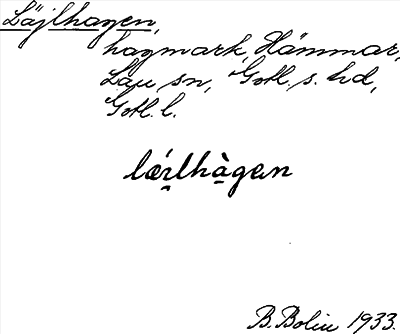 Läjlhagen,
hagmark, Hammar,
Lau sn, Gotl. s. hd,
Gotl. l.
lǽi̯lhàgan
B. Bolin 1933.